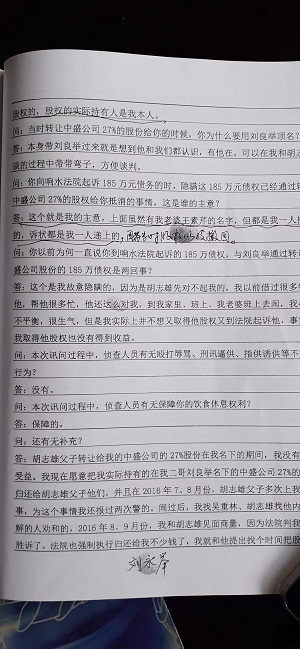 股权的，股权的实际持有人是我本人。
问：当时转让中盛公司27%的股份给你的时候，你为什么要用刘良举顶名？
答：本身带刘良举过来就是想到他和我们都认识，有他在，可以在我和胡志
谈的过程中带带弯子，方便谈判。
问：你向响水法院起诉185万元债务的时候，隐瞒这185万元债权已经通过转
中盛公司27%的股权给你抵消的事情。这是谁的主意？
答：这个就是我的主意，上面虽然有我老婆王素芹的名字，但都是我一人操
的，诉状都是我一人递上的，
问：你以前为何一直说你到响水法院起诉的185万债权，与刘良举通过转让
盛公司股份的185万债权是两回事？
答：这个是我故意隐瞒的，因为是胡志雄先对不起我的，我以前借过很多钱
他，帮他很多忙，他还这么对我，到我家里、班上、我老婆班上去闹，我心
不平衡，很生气，但是我实际上并不想又取得他股权又到法院起诉他，事实
我取得他股权也没有得到收益。
问：本次讯问过程中，侦查人员有无殴打辱骂、刑讯逼供、指供诱供等不
行为？
答：没有。
问：本次讯问过程中，侦查人员有无保障你的饮食休息权利？
答：保障的。
问：还有无补充？
答：胡志雄父子转让给我的中盛公司的27%股份在我名下的期间，我没有
受益。我现在愿意把我实际持有的在我二哥刘良举名下的中盛公司的27%
归还给胡志雄父子他们，并且在2016年7、8月份，胡志雄父子多次上我
事，为这个事情我还报过两次警的。间过后，我找吴重林、胡志雄找他内
解的人劝和的。2016年8、9月份，我和胡志雄见面商量，因为法院判我
胜诉了，法院也强制执行归还给我不少钱了，我就和他提出找个时间把股